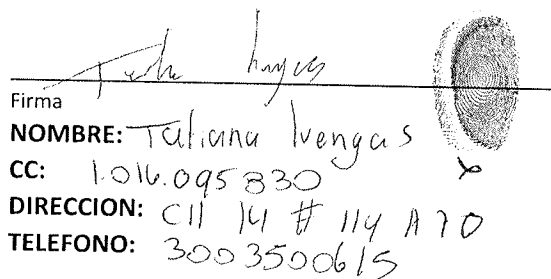 Firma
NOMBRE: Tatiana Ivengas
CC: 1.016.095830
DIRECCION: Cll 14 # 114 A 70
TELEFONO: 3003500615